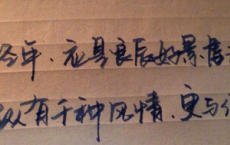 年，应是良辰好景虚
纵有千种风情，更与